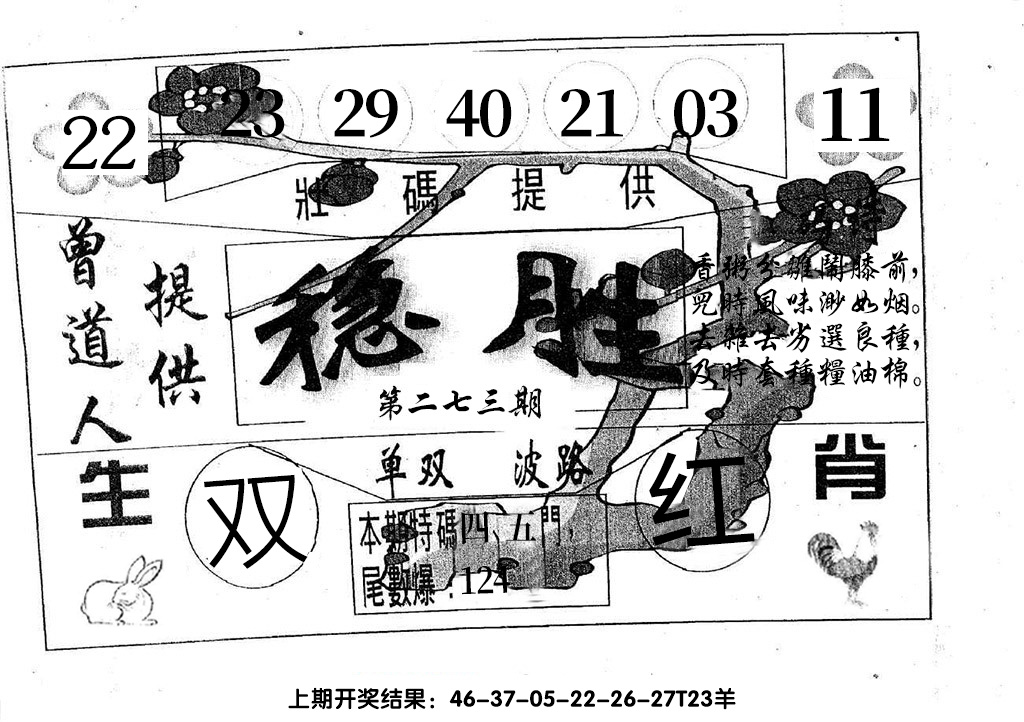 22 23 29 40 21 03 11
壯碼提供
特
曾道人
提供
稳胜
第二七三期
香粥分雛鬧膝前，
咒時風味渺如烟。
去雜去劣選良種，
及時套種糧油棉。
生肖
单双 波路
双
红
本期特碼四、五門，
尾數爆：124
上期开奖结果：46-37-05-22-26-27T23羊